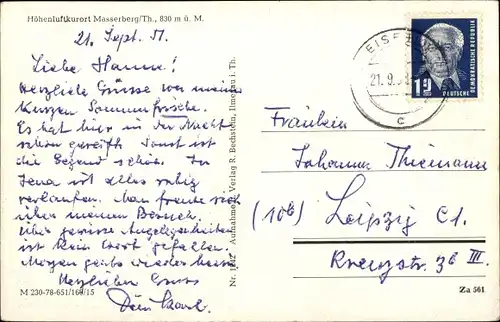 Höhenluftkurort Masserberg/Th., 830 m ü. M.
21. Sept. 51.
Liebe Hanna!
Herzliche Grüsse von meiner
kurzen Sommerfrische.
Es hat hier in der Nacht
schon gereift. Sonst ist
die Gegend schön. In
Jena ist alles ruhig
verlaufen. Man freute sich
über meinen Besuch.
Über gewisse Angelegenheiten
ist kein Wort gefallen.
Morgen geht's wieder heim.
Herzlichen Gruss
Dein Karl.
M 230-78-651/160/15
Aufnahme u. Verlag R. Bechstein, Ilmenau i. Th.
21.9.
c
DEUTSCHE
DEMOKRATISCHE REPUBLIK
Fräulein
Johanna Thiemann
(10b) Leipzig C1.
Kreuzstr. 3b III.
Za 561